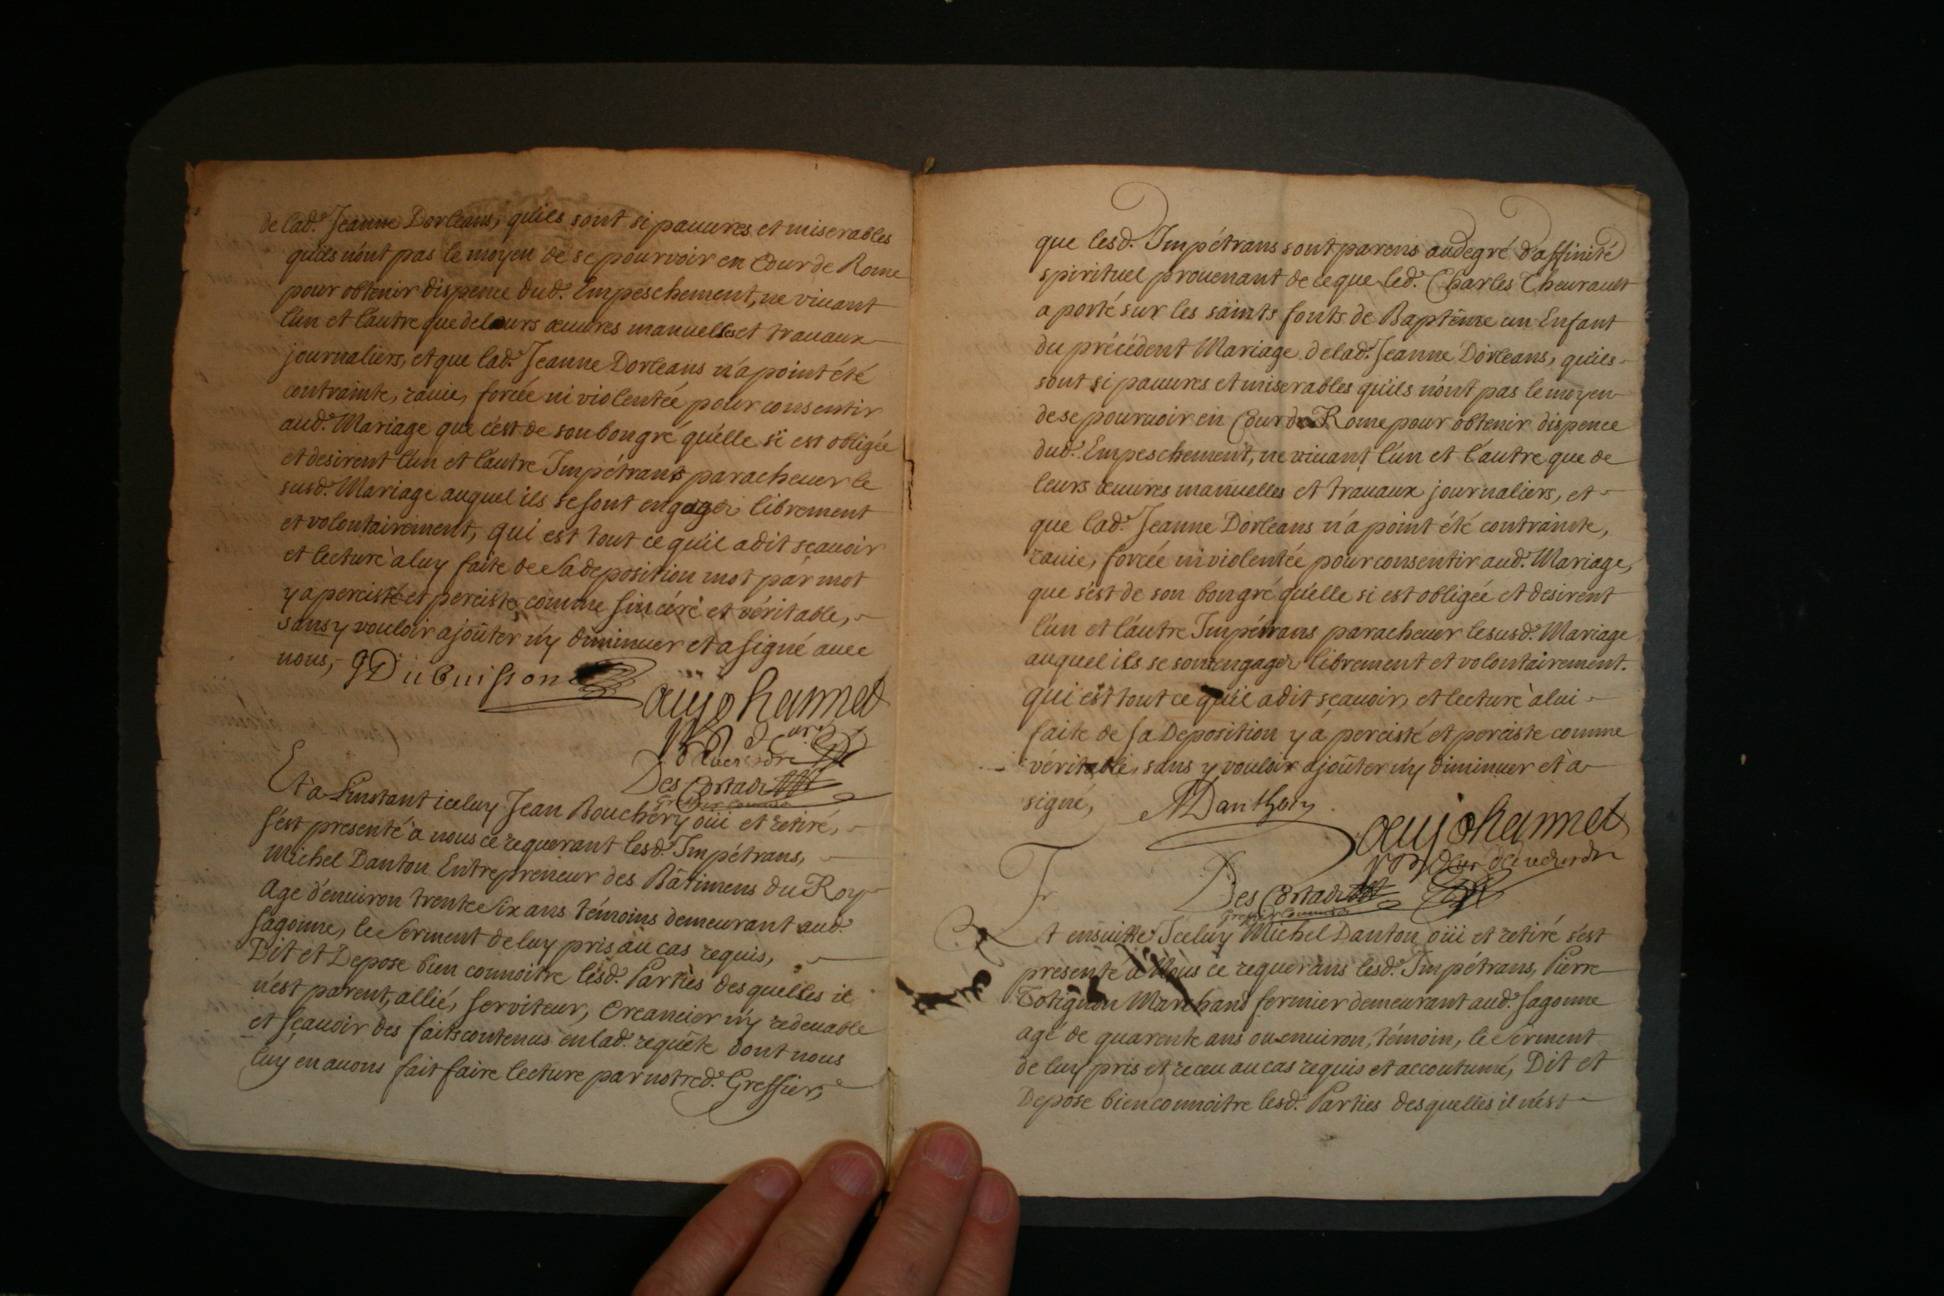 de lad.e Jeanne Dorleans, quils sont si pauures et miserables
quils n'ont pas le moyen de se pourvoir en Cour de Rome
pour obtenir dispence dud. Empeschement, ne viuant
l'un et l'autre que de leurs œuures manuelles et trauaux
journaliers, et que lad.e Jeanne Dorleans n'a point été
contrainte, rauie, forcée ni violentée pour consentir
aud. Mariage que c'est de son bon gré qu'elle s'i est obligée
et desirent l'un et l'autre Impétrans paracheuer le
susd. Mariage auquel ils se sont engagés librement
et volontairement, qui est tout ce qu'il a dit sçauoir
et lecture a luy faite de sa deposition mot par mot
y a perciste et perciste comme sincére et véritable,
sans y vouloir ajoûter n'y diminuer et a signé auec
nous,
Et a L'instant iceluy Jean Bouchery oüi et retiré,
s'est presenté a nous ce requerant lesd. Impétrans,
Michel Danton Entrepreneur des Bâtimens du Roy
age d'enuiron trente six ans témoins demeurant aud.
Sagonne, le Serment de luy pris au cas requis,
Dit et Depose bien connoitre lesd. Parties desquelles il
n'est parent, allié, serviteur, Creancier n'y redeuable
et sçauoir des faits contenus en lad. requête dont nous
luy en auons fait faire lecture par notred. Greffier,
que lesd. Impétrans sont parens au degré d'affinité
spirituel prouenant de ce que led. Charles Theurault
a porté sur les saints fonts de Baptême un Enfant
du précédent Mariage de lad. Jeanne Dorleans, quils
sont si pauures et miserables quils n'ont pas le moyen
de se pourvoir en Cour de Rome pour obtenir dispence
dud. Empeschement, ne viuant l'un et l'autre que de
leurs œuures manuelles et trauaux journaliers, et
que lad. Jeanne Dorleans n'a point été contrainte,
rauie, forcée ni violentée pour consentir aud. Mariage,
que s'est de son bon gré qu'elle s'i est obligée et desirent
l'un et l'autre Impétrans paracheuer le susd. Mariage
auquel ils se sont engagés librement et volontairement.
qui est tout ce qu'il a dit sçauoir, et lecture a lui
faite de sa Deposition y a perciste et perciste comme
véritable, sans y vouloir ajoûter n'y diminuer et a
signé,
Et ensuitte Iceluy Michel Danton oüi et retiré s'est
presenté a Nous ce requerans lesd. Impétrans, Pierre
Marchand fermier demeurant aud. Sagonne
agé de quarente ans ou enuiron, témoin, le Serment
de luy pris et receu au cas requis et accoutumé, Dit et
Depose bien connoitre lesd. Parties desquelles il n'est